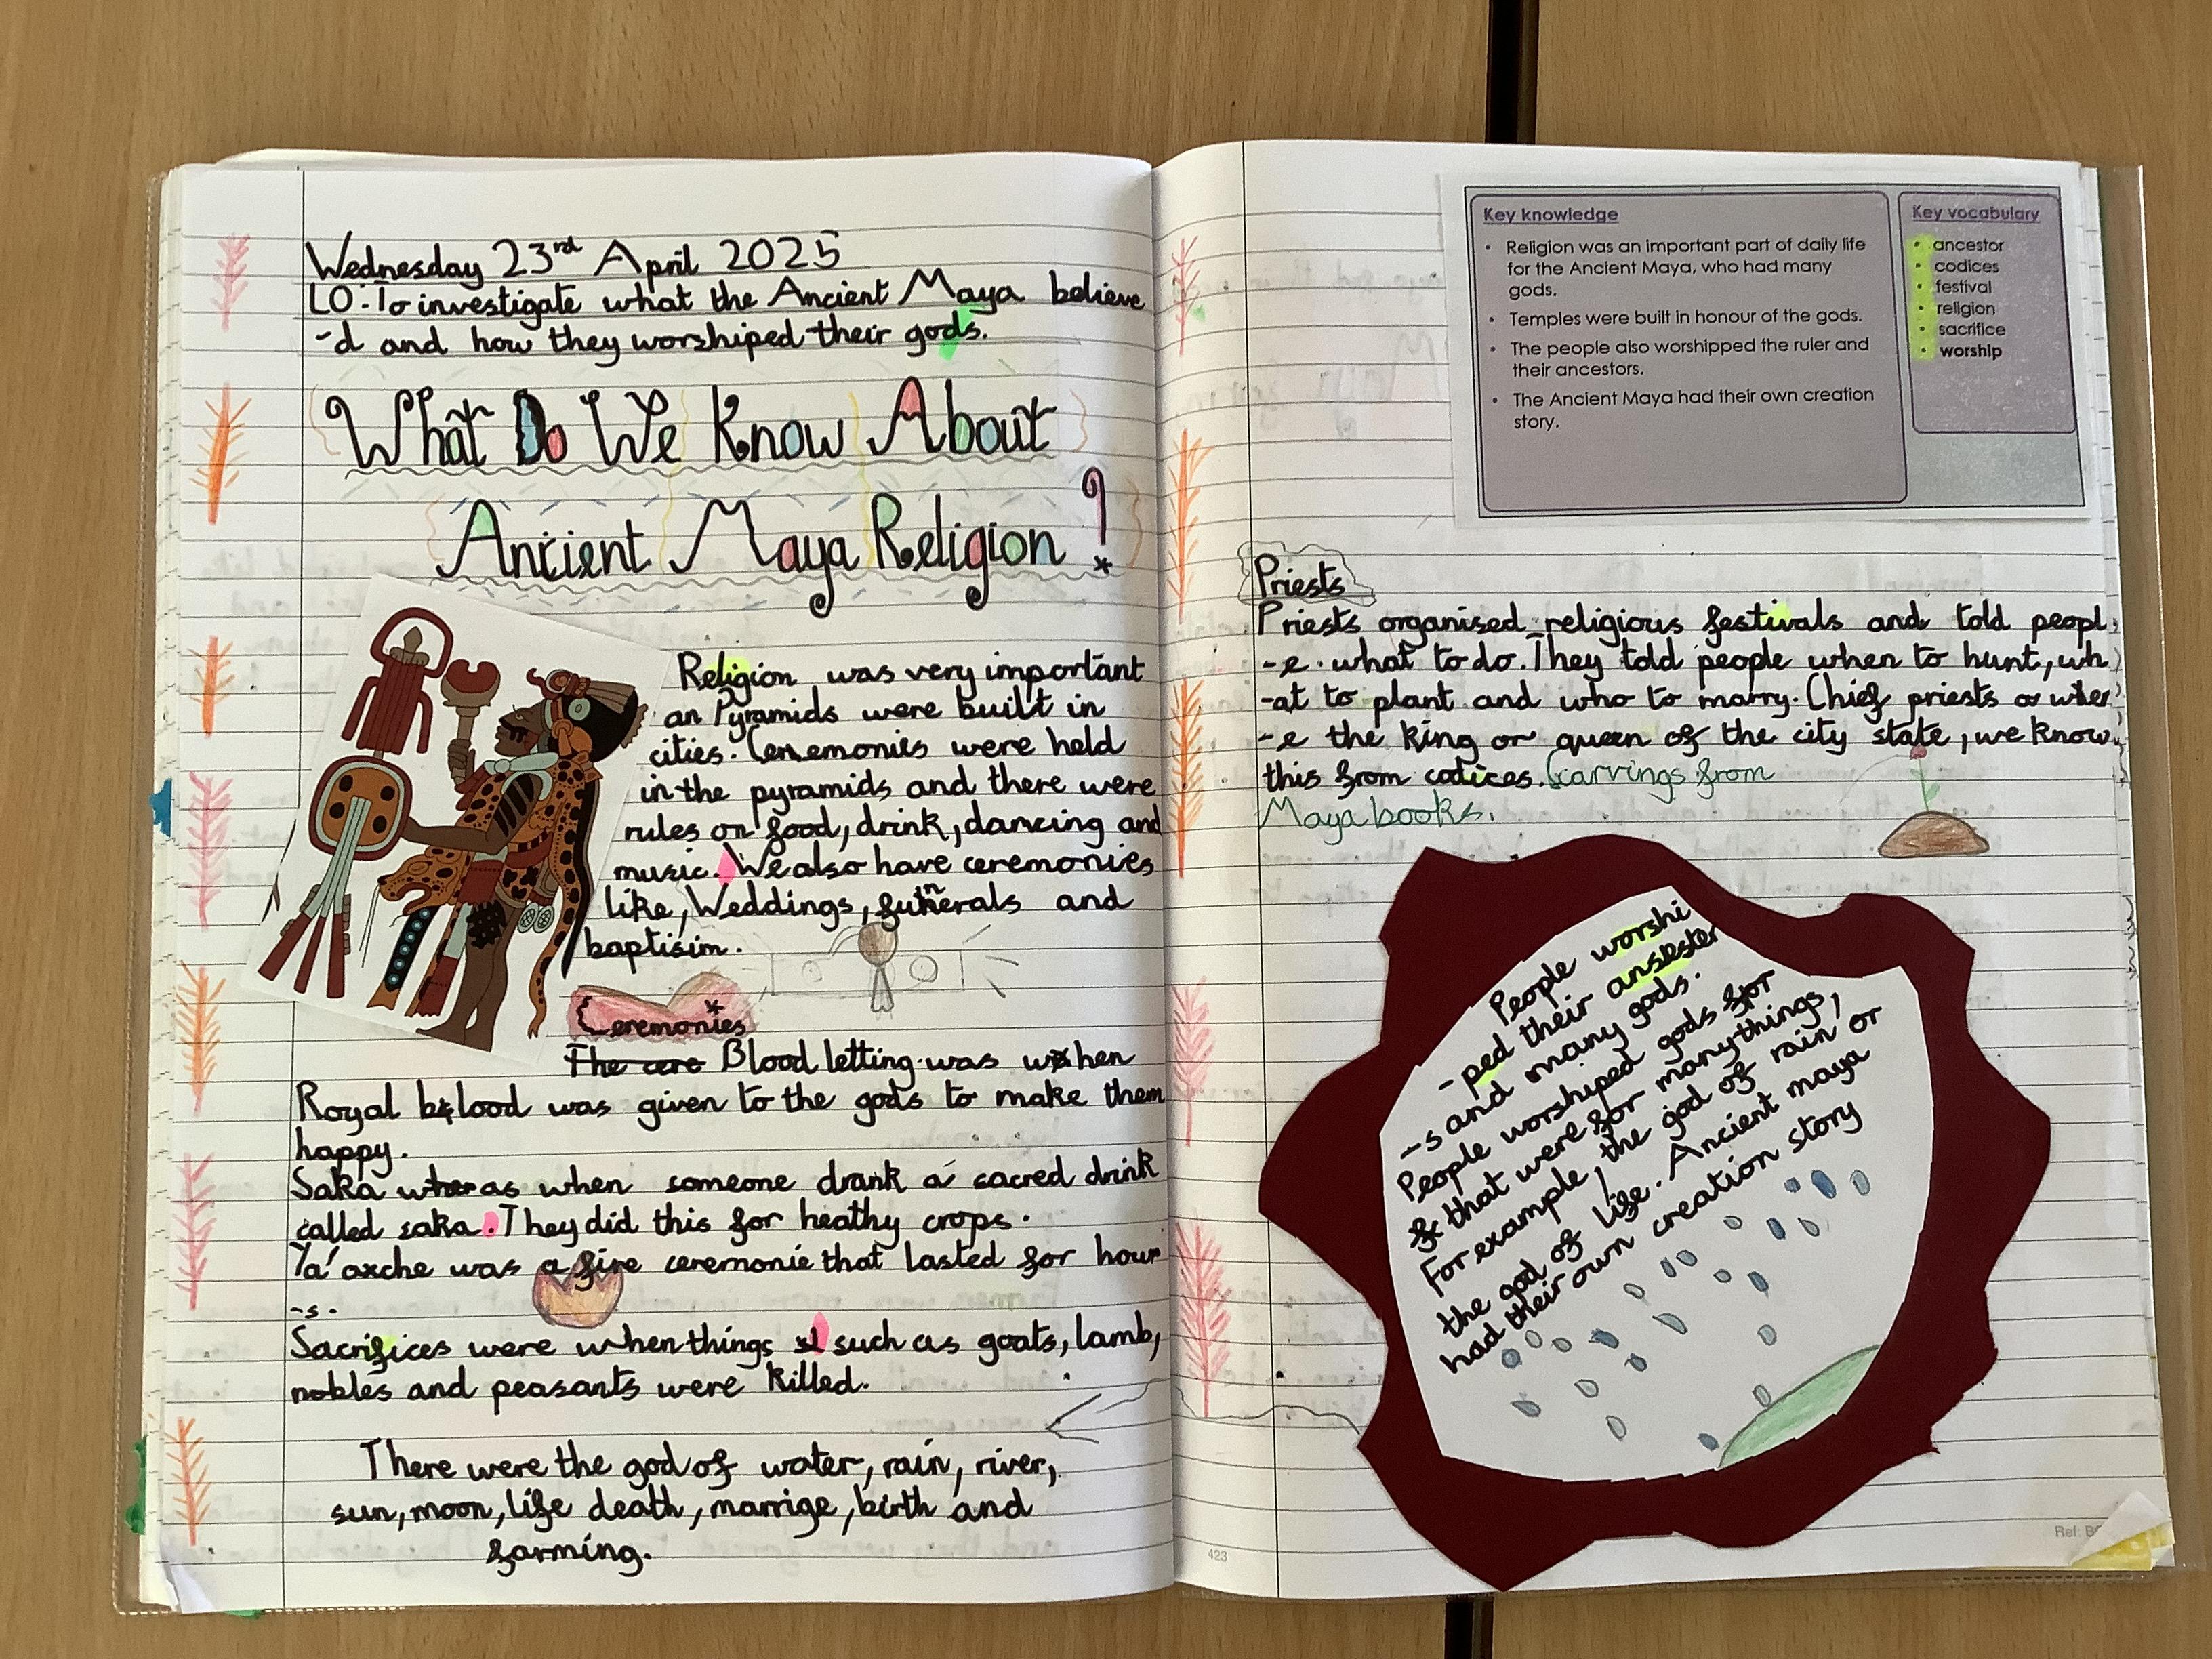 Wednesday 23rd April 2025
LO:To investigate what the Ancient Maya believe
-d and how they worshiped their gods.
What Do We Know About
Ancient Maya Religion?
Religion was very important
an Pyramids were built in
cities. Ceremonies were held
in the pyramids and there were
rules on food, drink, dancing and
music. We also have ceremonies
like, Weddings, funerals and
baptisim.
Ceremonies
The cere Blood letting was when
Royal blood was given to the gods to make them
happy.
Saka was when someone drank a sacred drink
called saka. They did this for heathy crops.
Ya'axche was a fire ceremonie that lasted for hour
-s.
Sacrifices were when things such as goats, lamb,
nobles and peasants were killed.
There were the god of water, rain, river,
sun, moon, life death, marrige, birth and
farming.
Key knowledge
• Religion was an important part of daily life
for the Ancient Maya, who had many
gods.
• Temples were built in honour of the gods.
• The people also worshipped the ruler and
their ancestors.
• The Ancient Maya had their own creation
story.
Key vocabulary
• ancestor
• codices
• festival
• religion
• sacrifice
• worship
Priests
Priests organised religious festivals and told peopl
-e what to do. They told people when to hunt, wh
-at to plant and who to marry. Chief priests or wher
-e the king or queen of the city state, we know
this from codices. (carvings from
Maya books.
People worshi
-ped their ansester
-s and many gods.
People worshiped gods for
that were for many things,
For example, the god of rain or
the god of life. Ancient maya
had their own creation story
423
Ref: